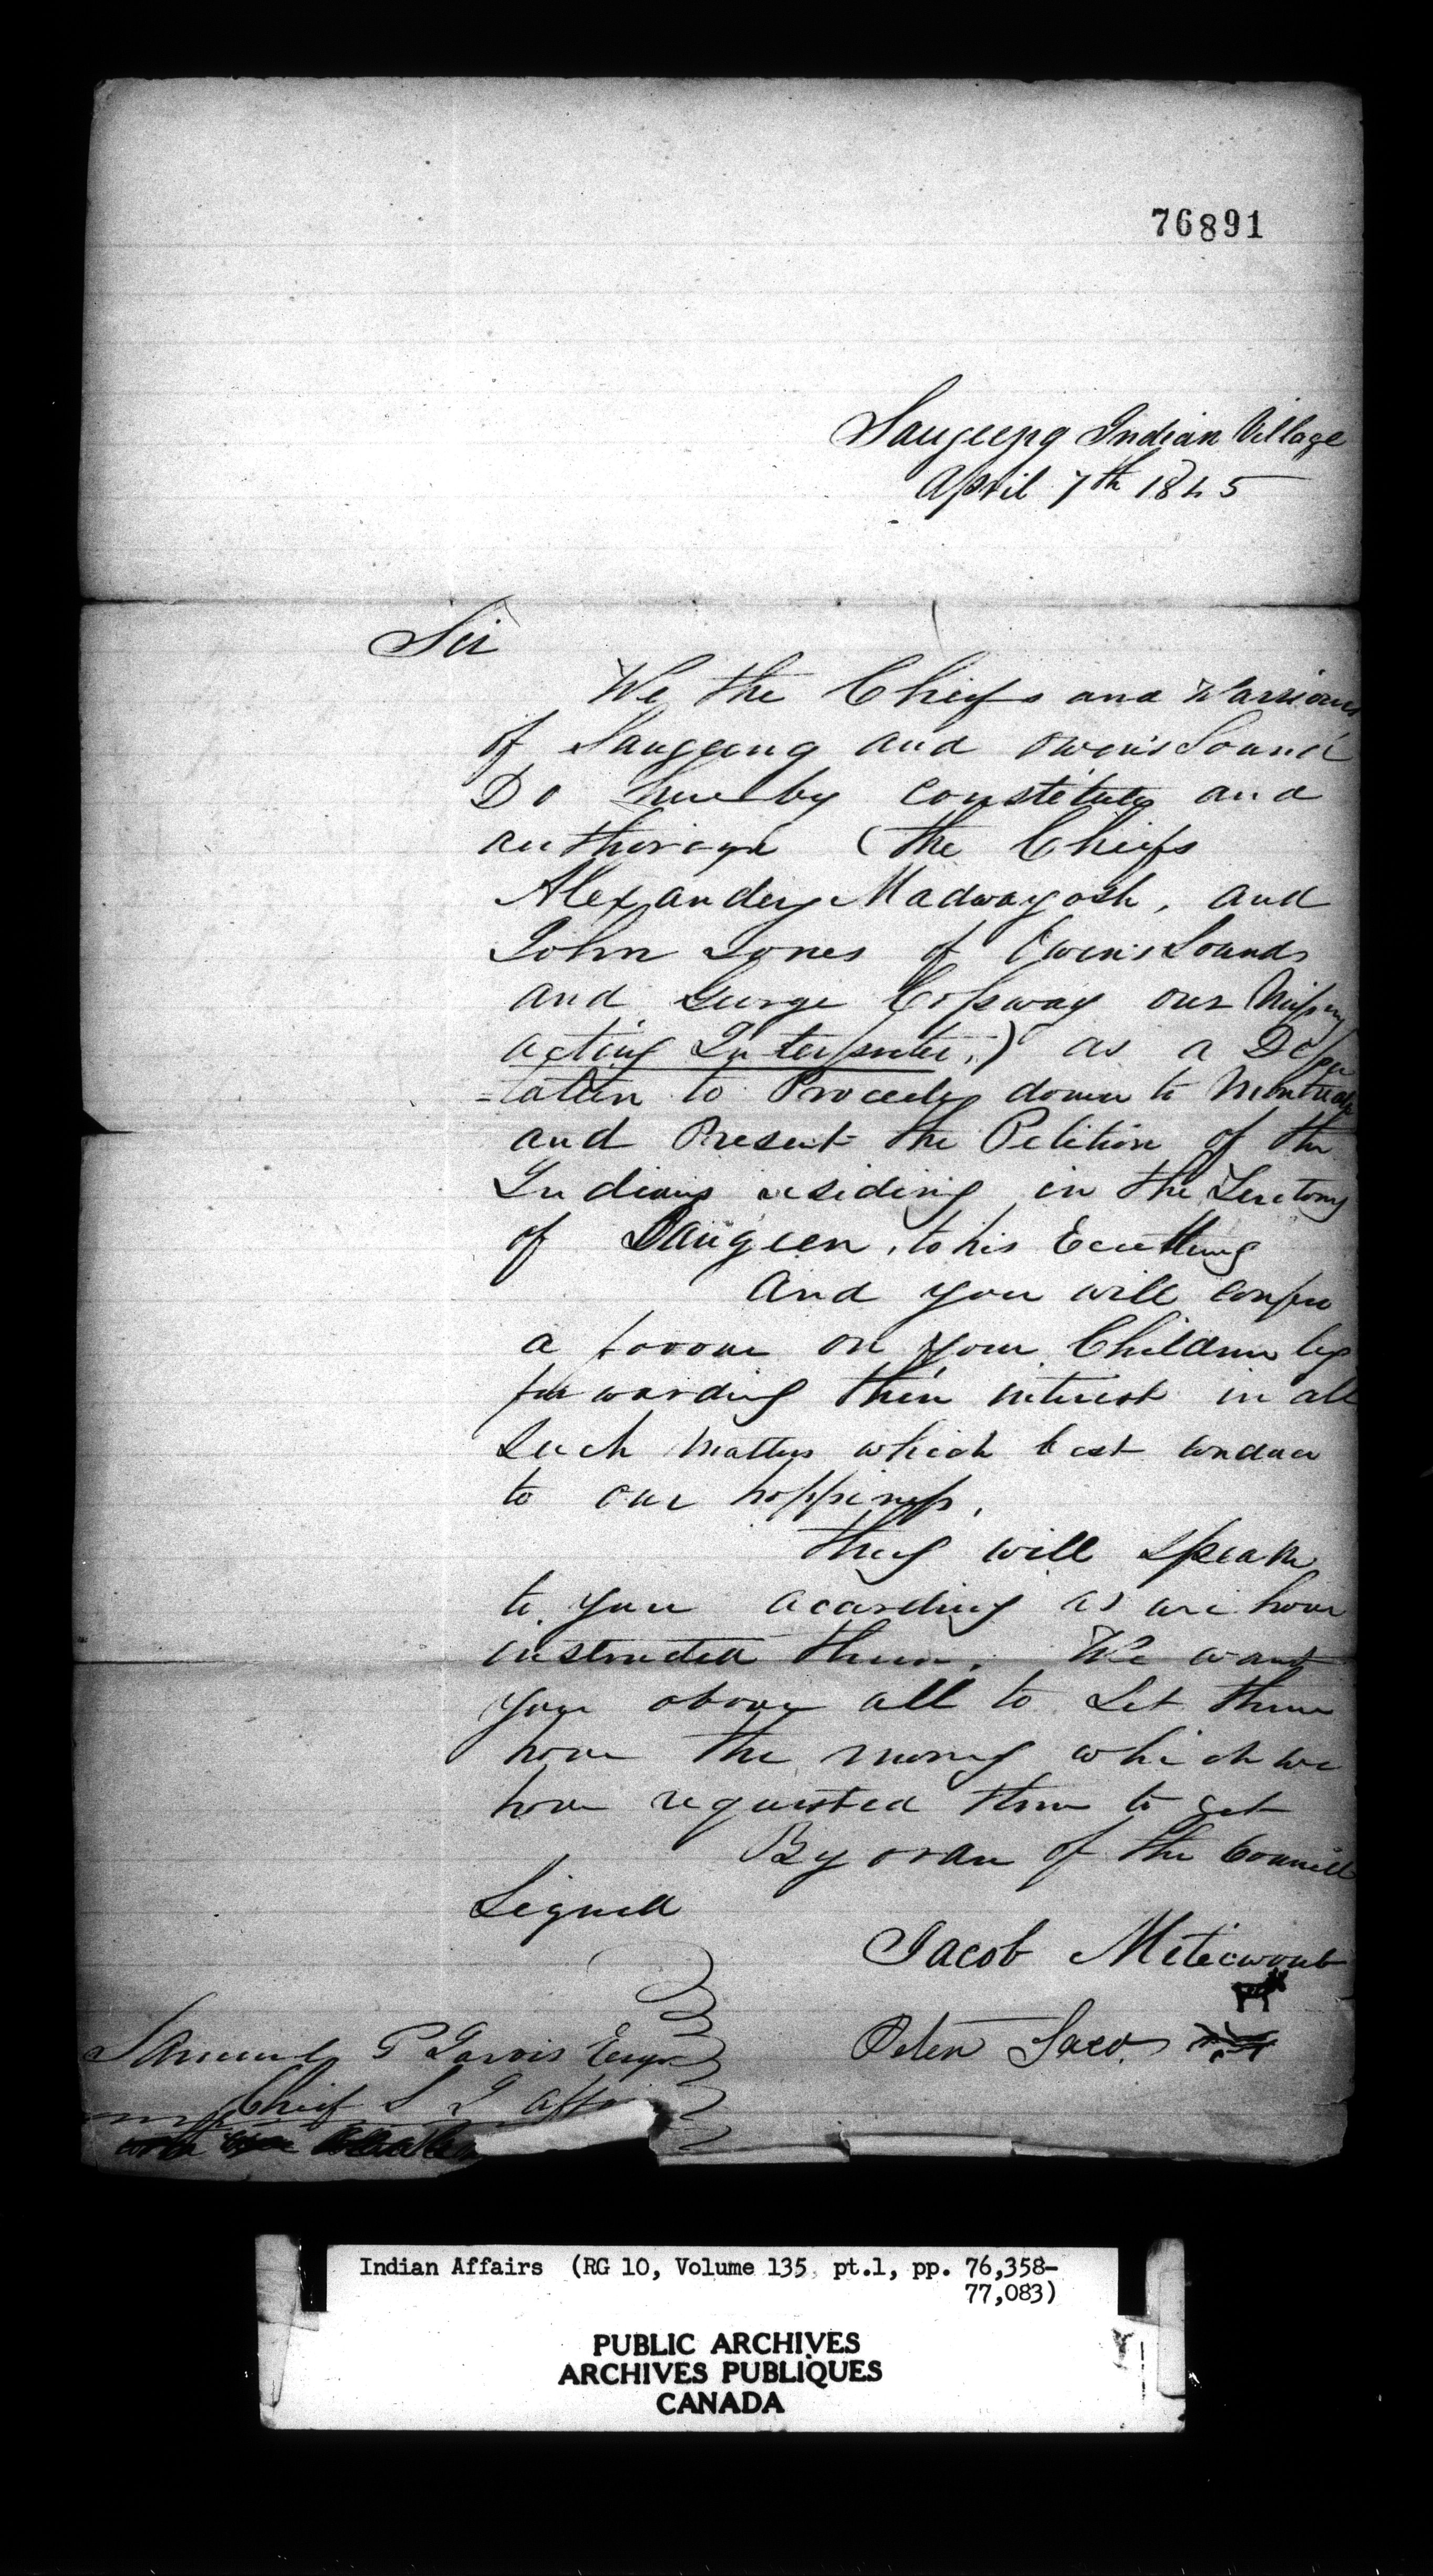 76891
Saugeeng Indian Village
April 7th 1845
Sir
We the Chiefs and Warriours
of Saugeeng and Owen's Sound
Do hereby constitute and
authorize (the Chiefs
Alexander Madwayosh, and
John Jones of Owen's Sounds
and George Copway our
acting Interpreter,) as a Depu
=tation to Proceed down to Montreal
and Present the Petition of the
Indians residing in the
of Saugeen, to his
And you will confer
a favour on your Children by
forwarding their interest in all
such matters which best conduce
to our happiness.
They will speak
to you according as we have
instructed them. We want
you above all to Let them
have the money which we
have requested them to get
By order of the Council
Signed
Jacob Metecwoub
Peter Jaco
Samuel P Jarvis Esqr
Chief S I
Indian Affairs (RG 10, Volume 135 pt.1, pp. 76,358-
77,083)
PUBLIC ARCHIVES
ARCHIVES PUBLIQUES
CANADA